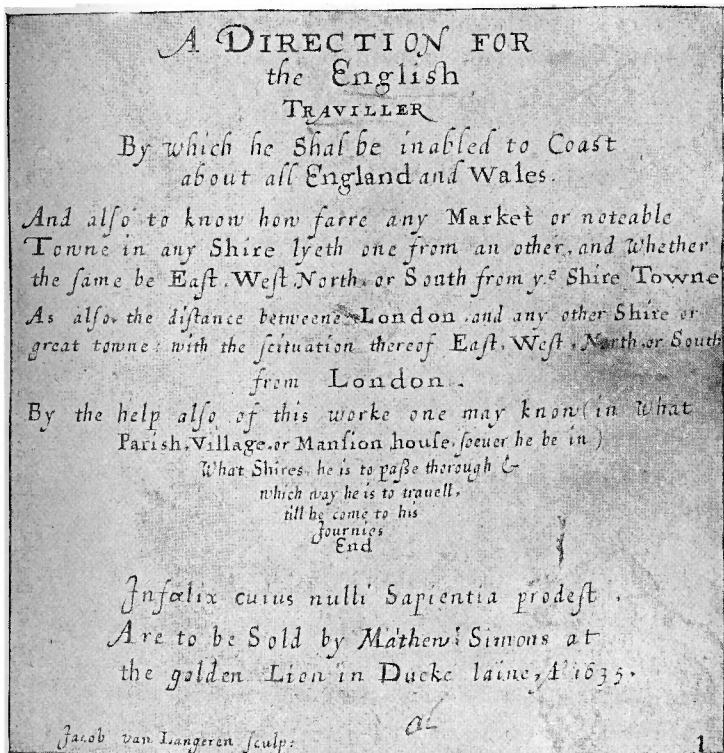 A DIRECTION FOR
the Engliſh
TRAVILLER
By which he Shal be inabled to Coaſt
about all England and Wales.
And alſo to know how farre any Market or noteable
Towne in any Shire lyeth one from an other, and Whether
the ſame be Eaſt, Weſt, North, or South from yᵉ Shire Towne
As alſo, the diſtance betweene London, and any other Shire or
great towne: with the ſcituation thereof Eaſt, Weſt, North, or South
from London.
By the help alſo of this worke one may know (in What
Pariſh, Village, or Manſion houſe, ſoever he be in)
What Shires, he is to paſſe thorough &
which way he is to travell,
till he come to his
Journies
End
Infœlix cuius nulli Sapientia prodeſt.
Are to be Sold by Mathew Simons at
the golden Lion in Ducke laine, Aº 1635.
Jacob van Langeren ſculp:
1